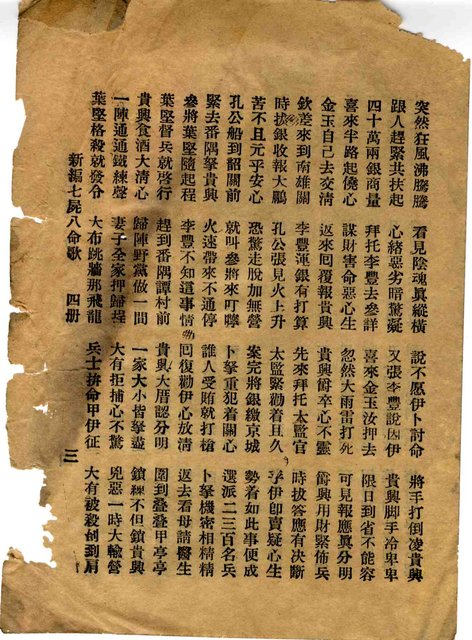 突然狂風沸騰騰 看見陰魂真縱橫 說不愿伊卜討命 將手打倒凌貴興
跟人趕緊共扶起 心緒惡劣暗驚疑 又張李豐說因伊 貴興脚手冷卑卑
四十萬兩銀商量 拜托李豐去參詳 喜來金玉汝押去 限日到省不能容
喜來半路起僥心 謀財害命惡心生 忽然大雨雷打死 可見報應真分明
金玉自己去交清 返來回覆報貴興 貴興爵卒心不靈 爵興用財緊佈兵
欽差來到南雄關 李豐運銀有打算 先來拜托太監官 時拔答應有決斷
時拔銀收報大鵬 孔公張見火上升 太監緊勸着且久 孚伊卽賣疑心生
苦不且元平安心 恐驚走脫加無營 案完將銀繳京城 勢着如此事便成
孔公船到韶關前 就叫參將來叮嚀 卜拏重犯着關心 選派二三百名兵
緊去番隅拏貴興 火速帶來不通停 誰人受賄就打槍 卜拏機密相精精
參將葉堅隨起程 李豐不知這事情 回復勸伊心放清 返去看母請醫生
葉堅督兵就啓行 趕到番隅譚村前 貴興大厝認分明 圍到叠叠甲亭亭
貴興食酒大清心 歸陣野黨做一間 一家大小皆拏盡 鎖練不但鎖貴興
一陣通通鐵練聲 妻子全家押歸埕 大有拒捕心不驚 兇惡一時大輸營
葉堅格殺就發令 大布跳牆那飛龍 兵士拚命甲伊征 大有被殺刣到肩
新編七屍八命歌 四册 三